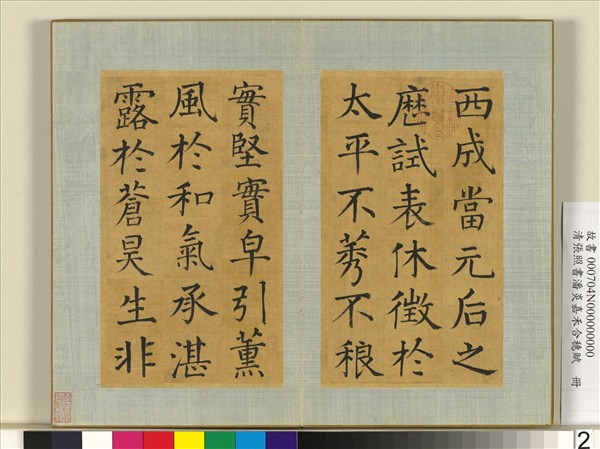 西成當元后之
歷試表休徵於
太平不莠不稂
實堅實皁引薰
風於和氣承湛
露於蒼昊生非
故書 000704N000000000
清張照書潘炎嘉禾合穗賦 冊
2